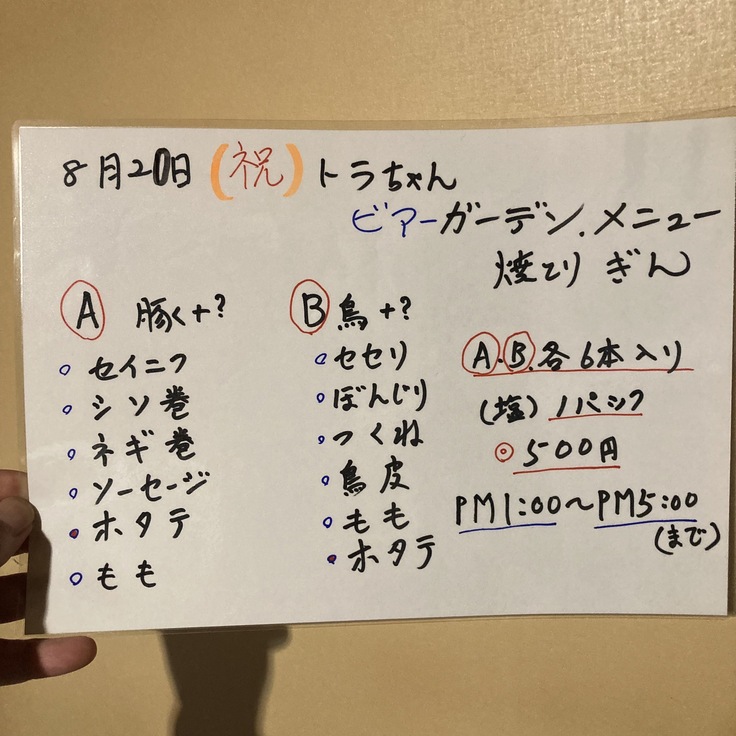 8月20日(祝)トラちゃん
ビアーガーデン.メニュー
焼とり ぎん
A 豚く+?
セイニク
シソ巻
ネギ巻
ソーセージ
ホタテ
もも
B 鳥+?
セセリ
ぼんじり
つくね
鳥皮
もも
ホタテ
A.B.各6本入り
(塩)1パック
◎500円
PM1:00〜PM5:00
(まで)